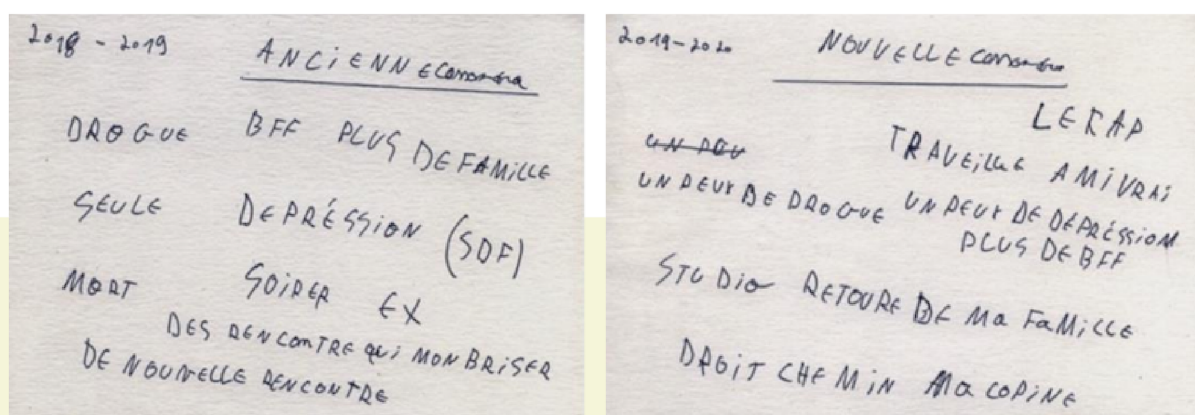 2018 - 2019
ANCIENNE Cassandra
DROGUE BFF PLUS DE FAMILLE
SEULE DEPRÉSSION (SDF)
MORT SOIRER EX
DES RENCONTRE qui MON BRISER
DE NOUVELLE RENCONTRE
2019-2020
NOUVELLE Cassandra
LE RAP
UN PEU TRAVEILLE AMI VRAI
UN PEUT DE DROGUE UN PEUT DE DÉPRÉSSION
PLUS DE BFF
STUDIO RETOURE DE MA FAMILLE
DROIT CHEMIN MA COPINE